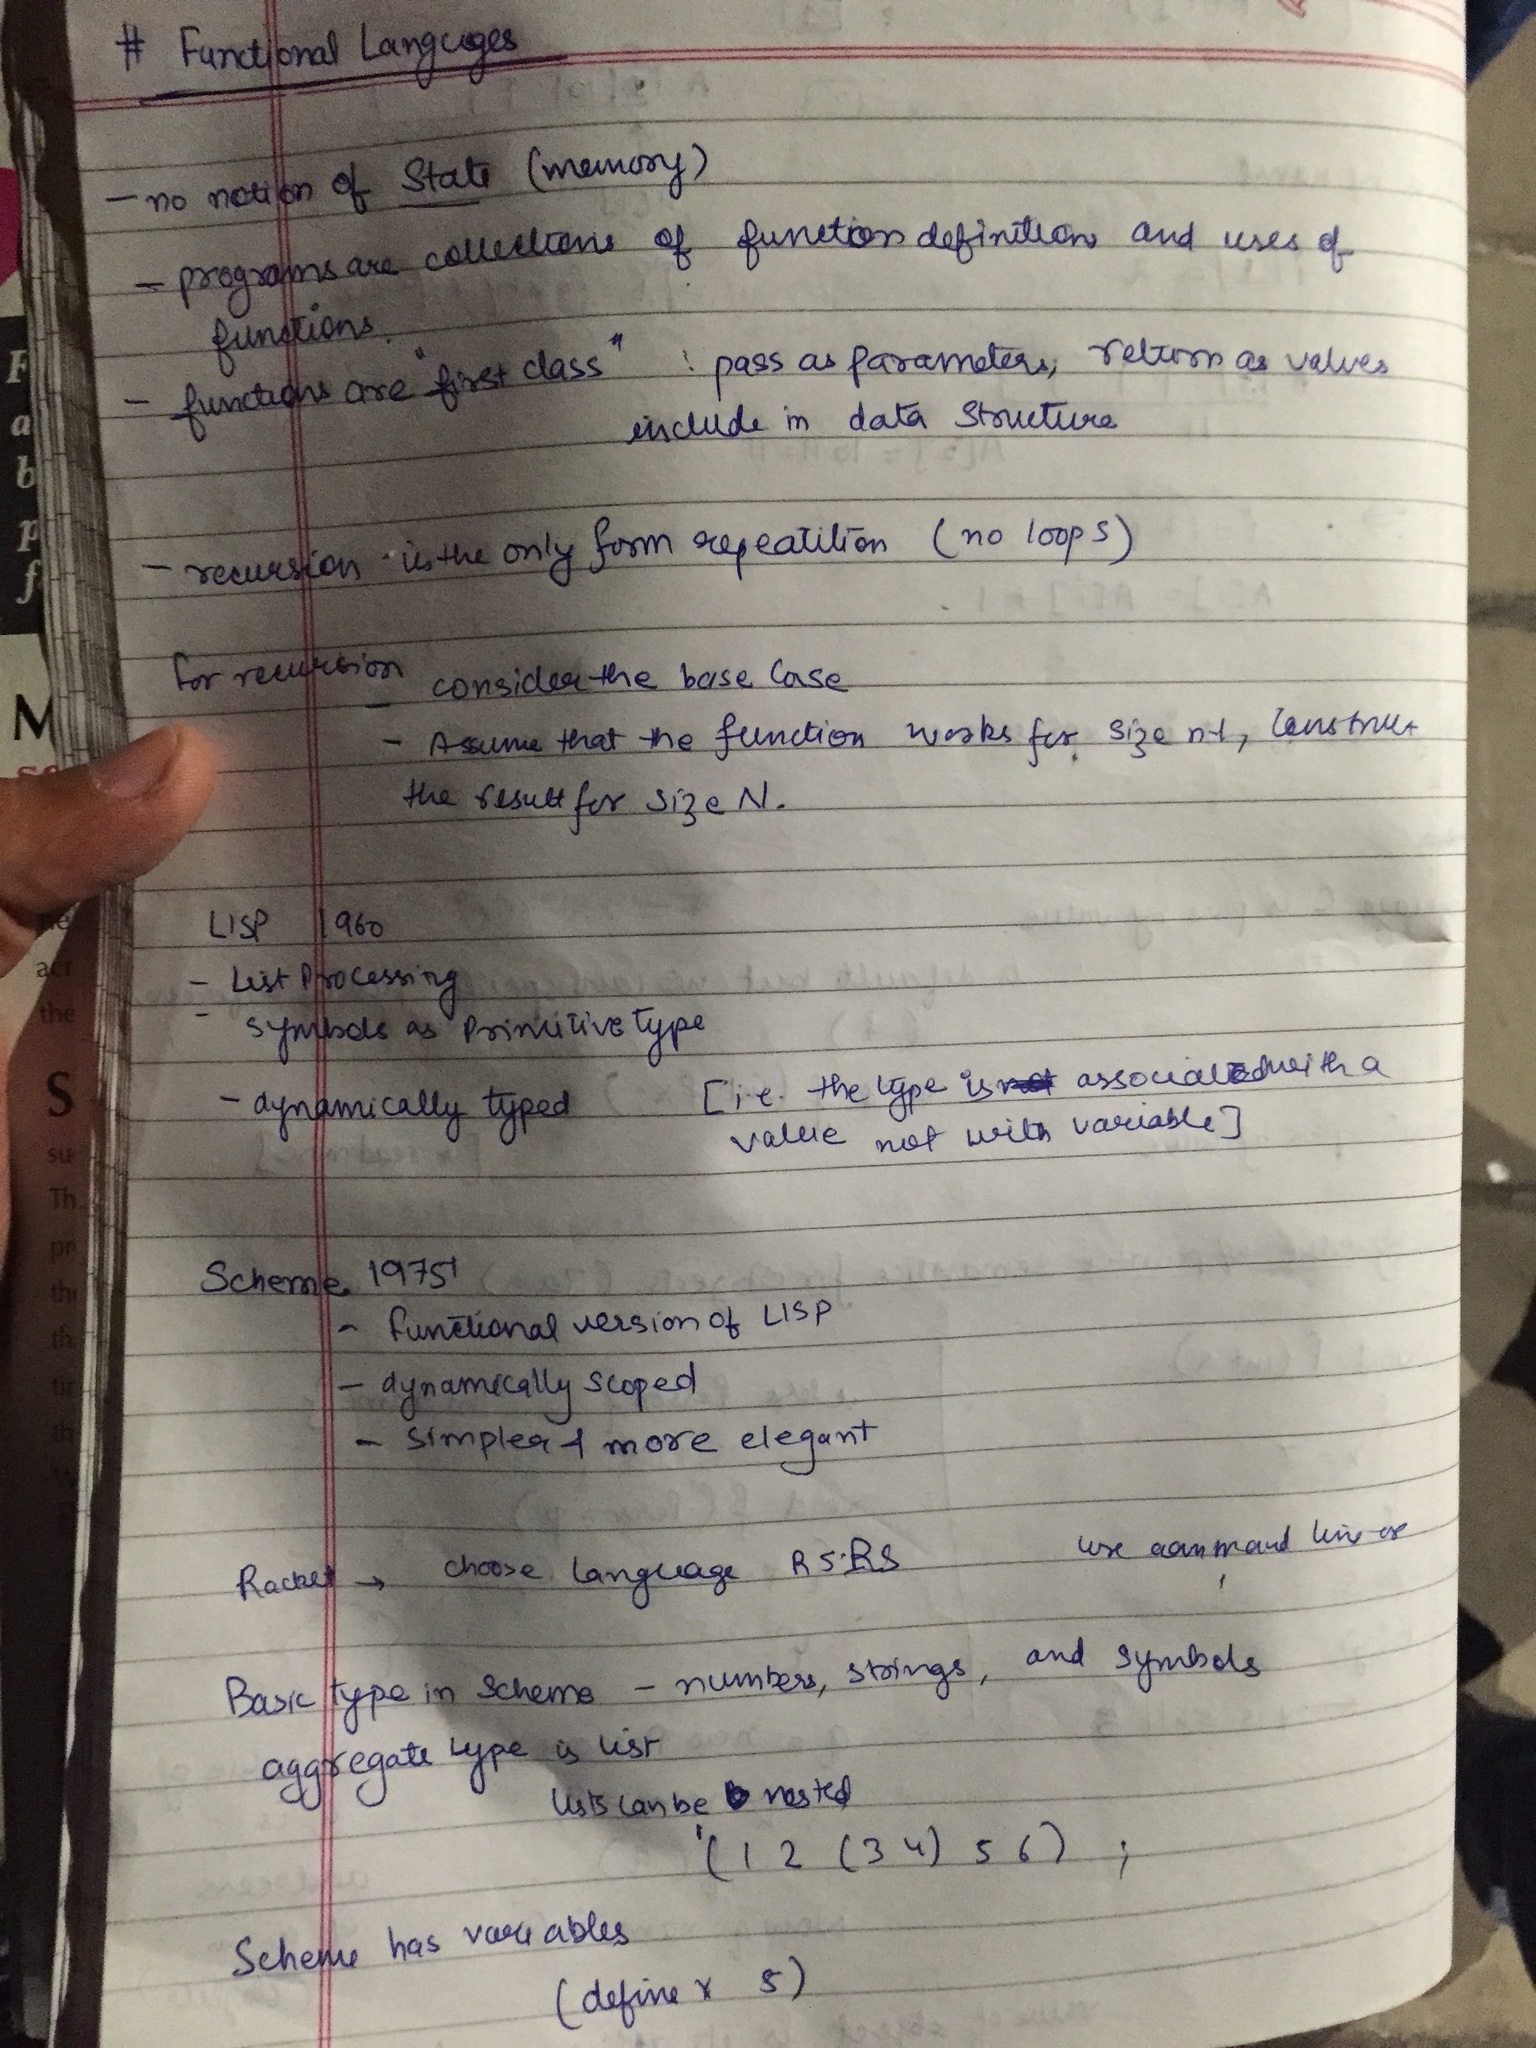 # Functional Languges
- no notion of State (memory)
- programs are collections of function definitions and uses of
functions.
- functions are "first class" : pass as parameters, return as values
include in data Structure
- recursion is the only form repeatition (no loops)
for recursion
- consider the base Case
- Assume that the function works for size n-1, Construct
the result for size N.
LISP 1960
- List Processing
- symbols as Primitive type
- dynamically typed [i.e. the type is associated with a
value not with variable]
Scheme 1975
- functional version of LISP
- dynamically scoped
- simpler & more elegant
Racket → choose language R5RS use command line or
Basic type in Scheme - numbers, strings, and symbols
aggregate type is list
lists can be nested
'(1 2 (3 4) 5 6) ;
Scheme has variables
(define x 5)